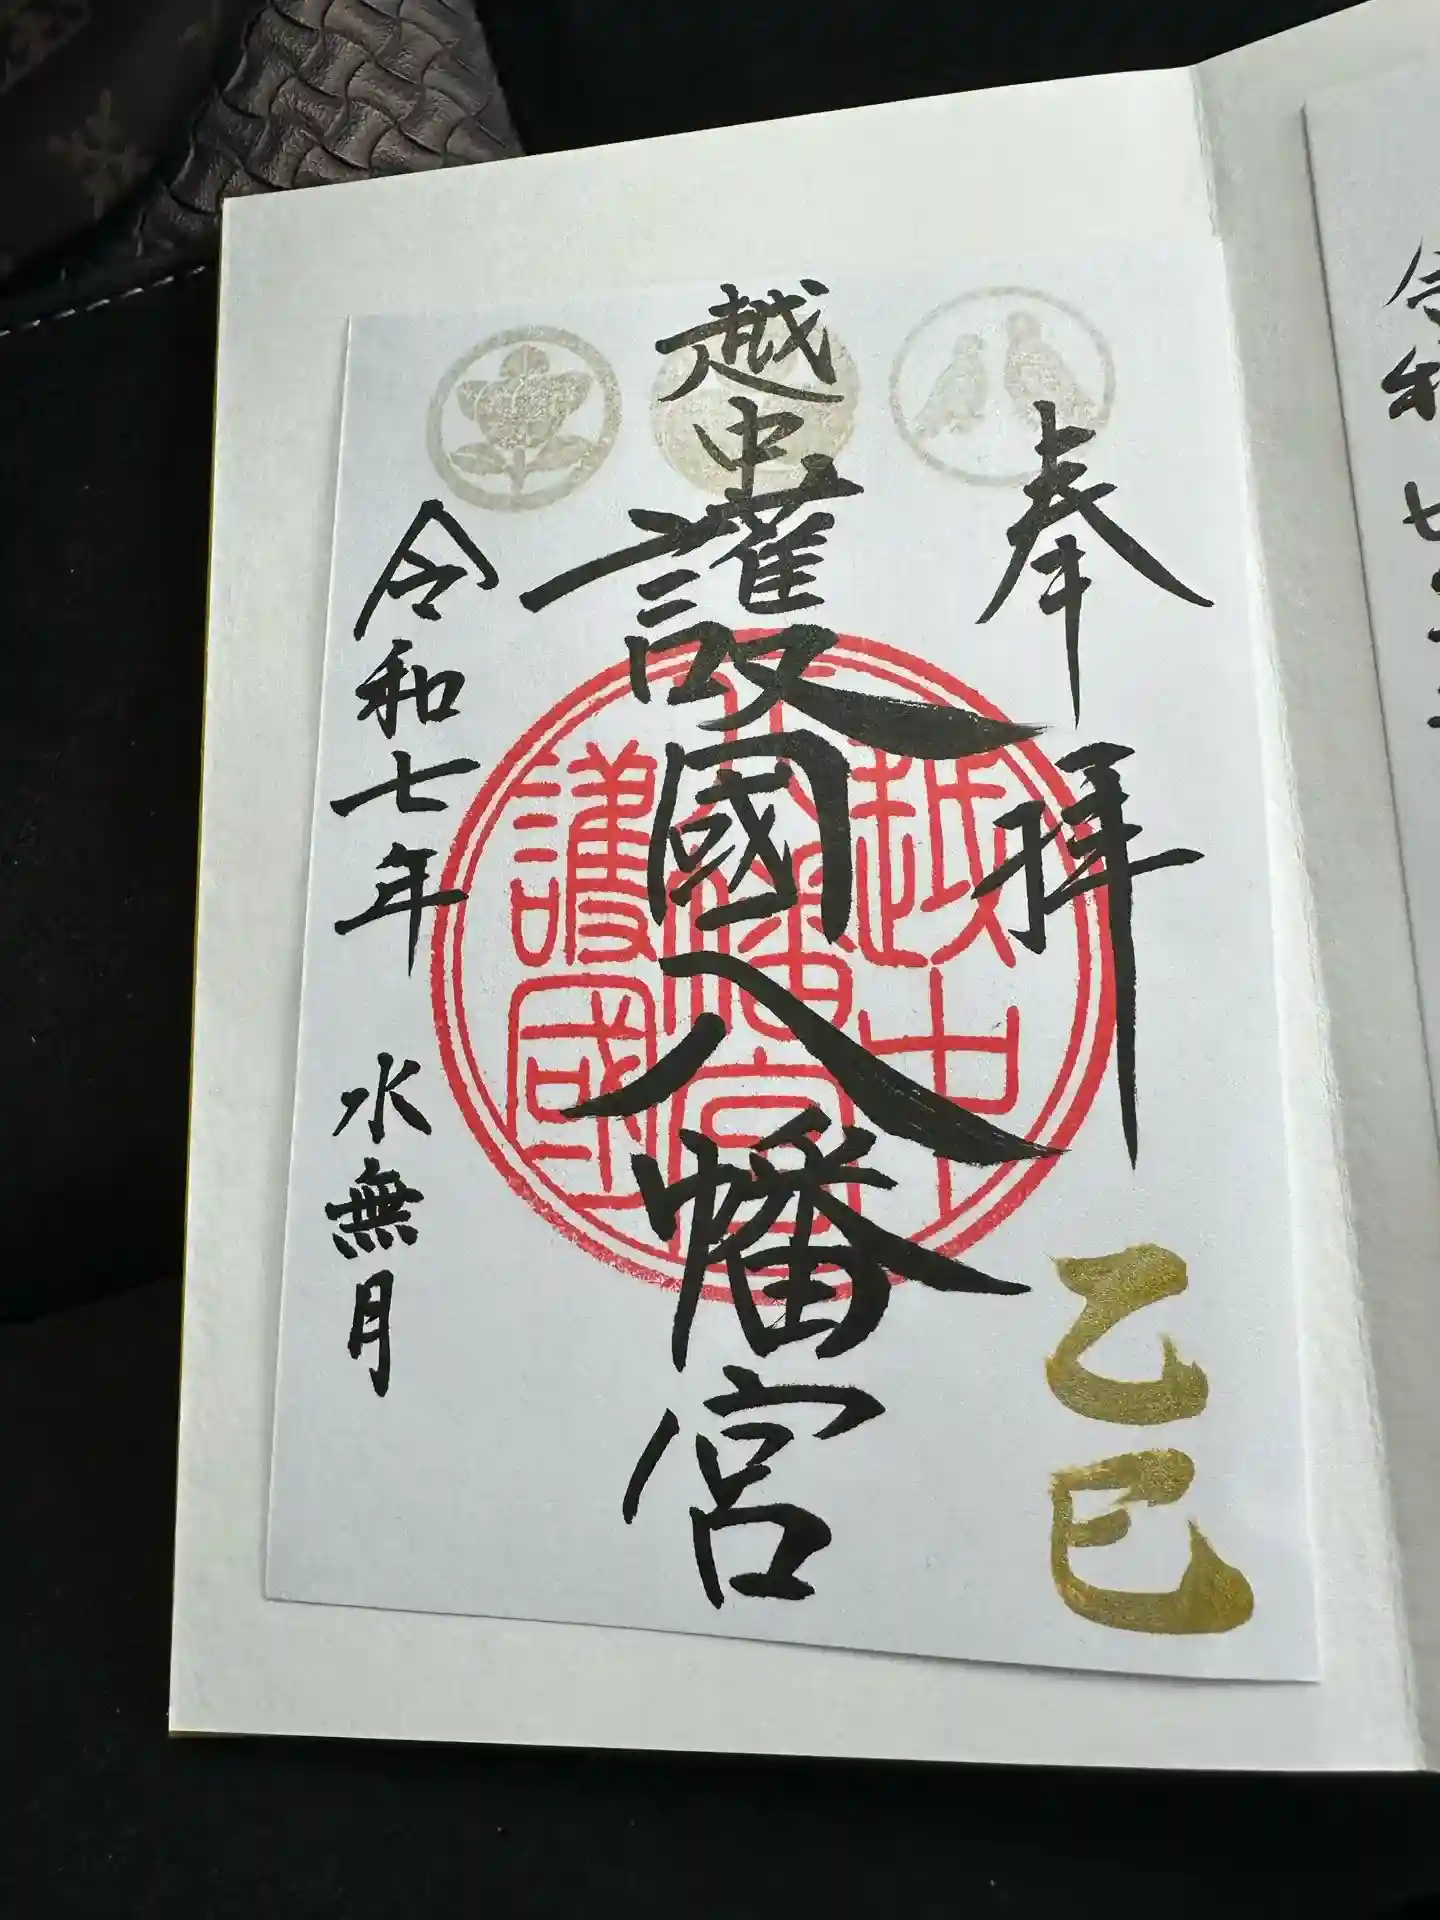 奉拝
乙巳
越中護國八幡宮
越中
八幡宮
護國
令和七年 水無月
令和七年